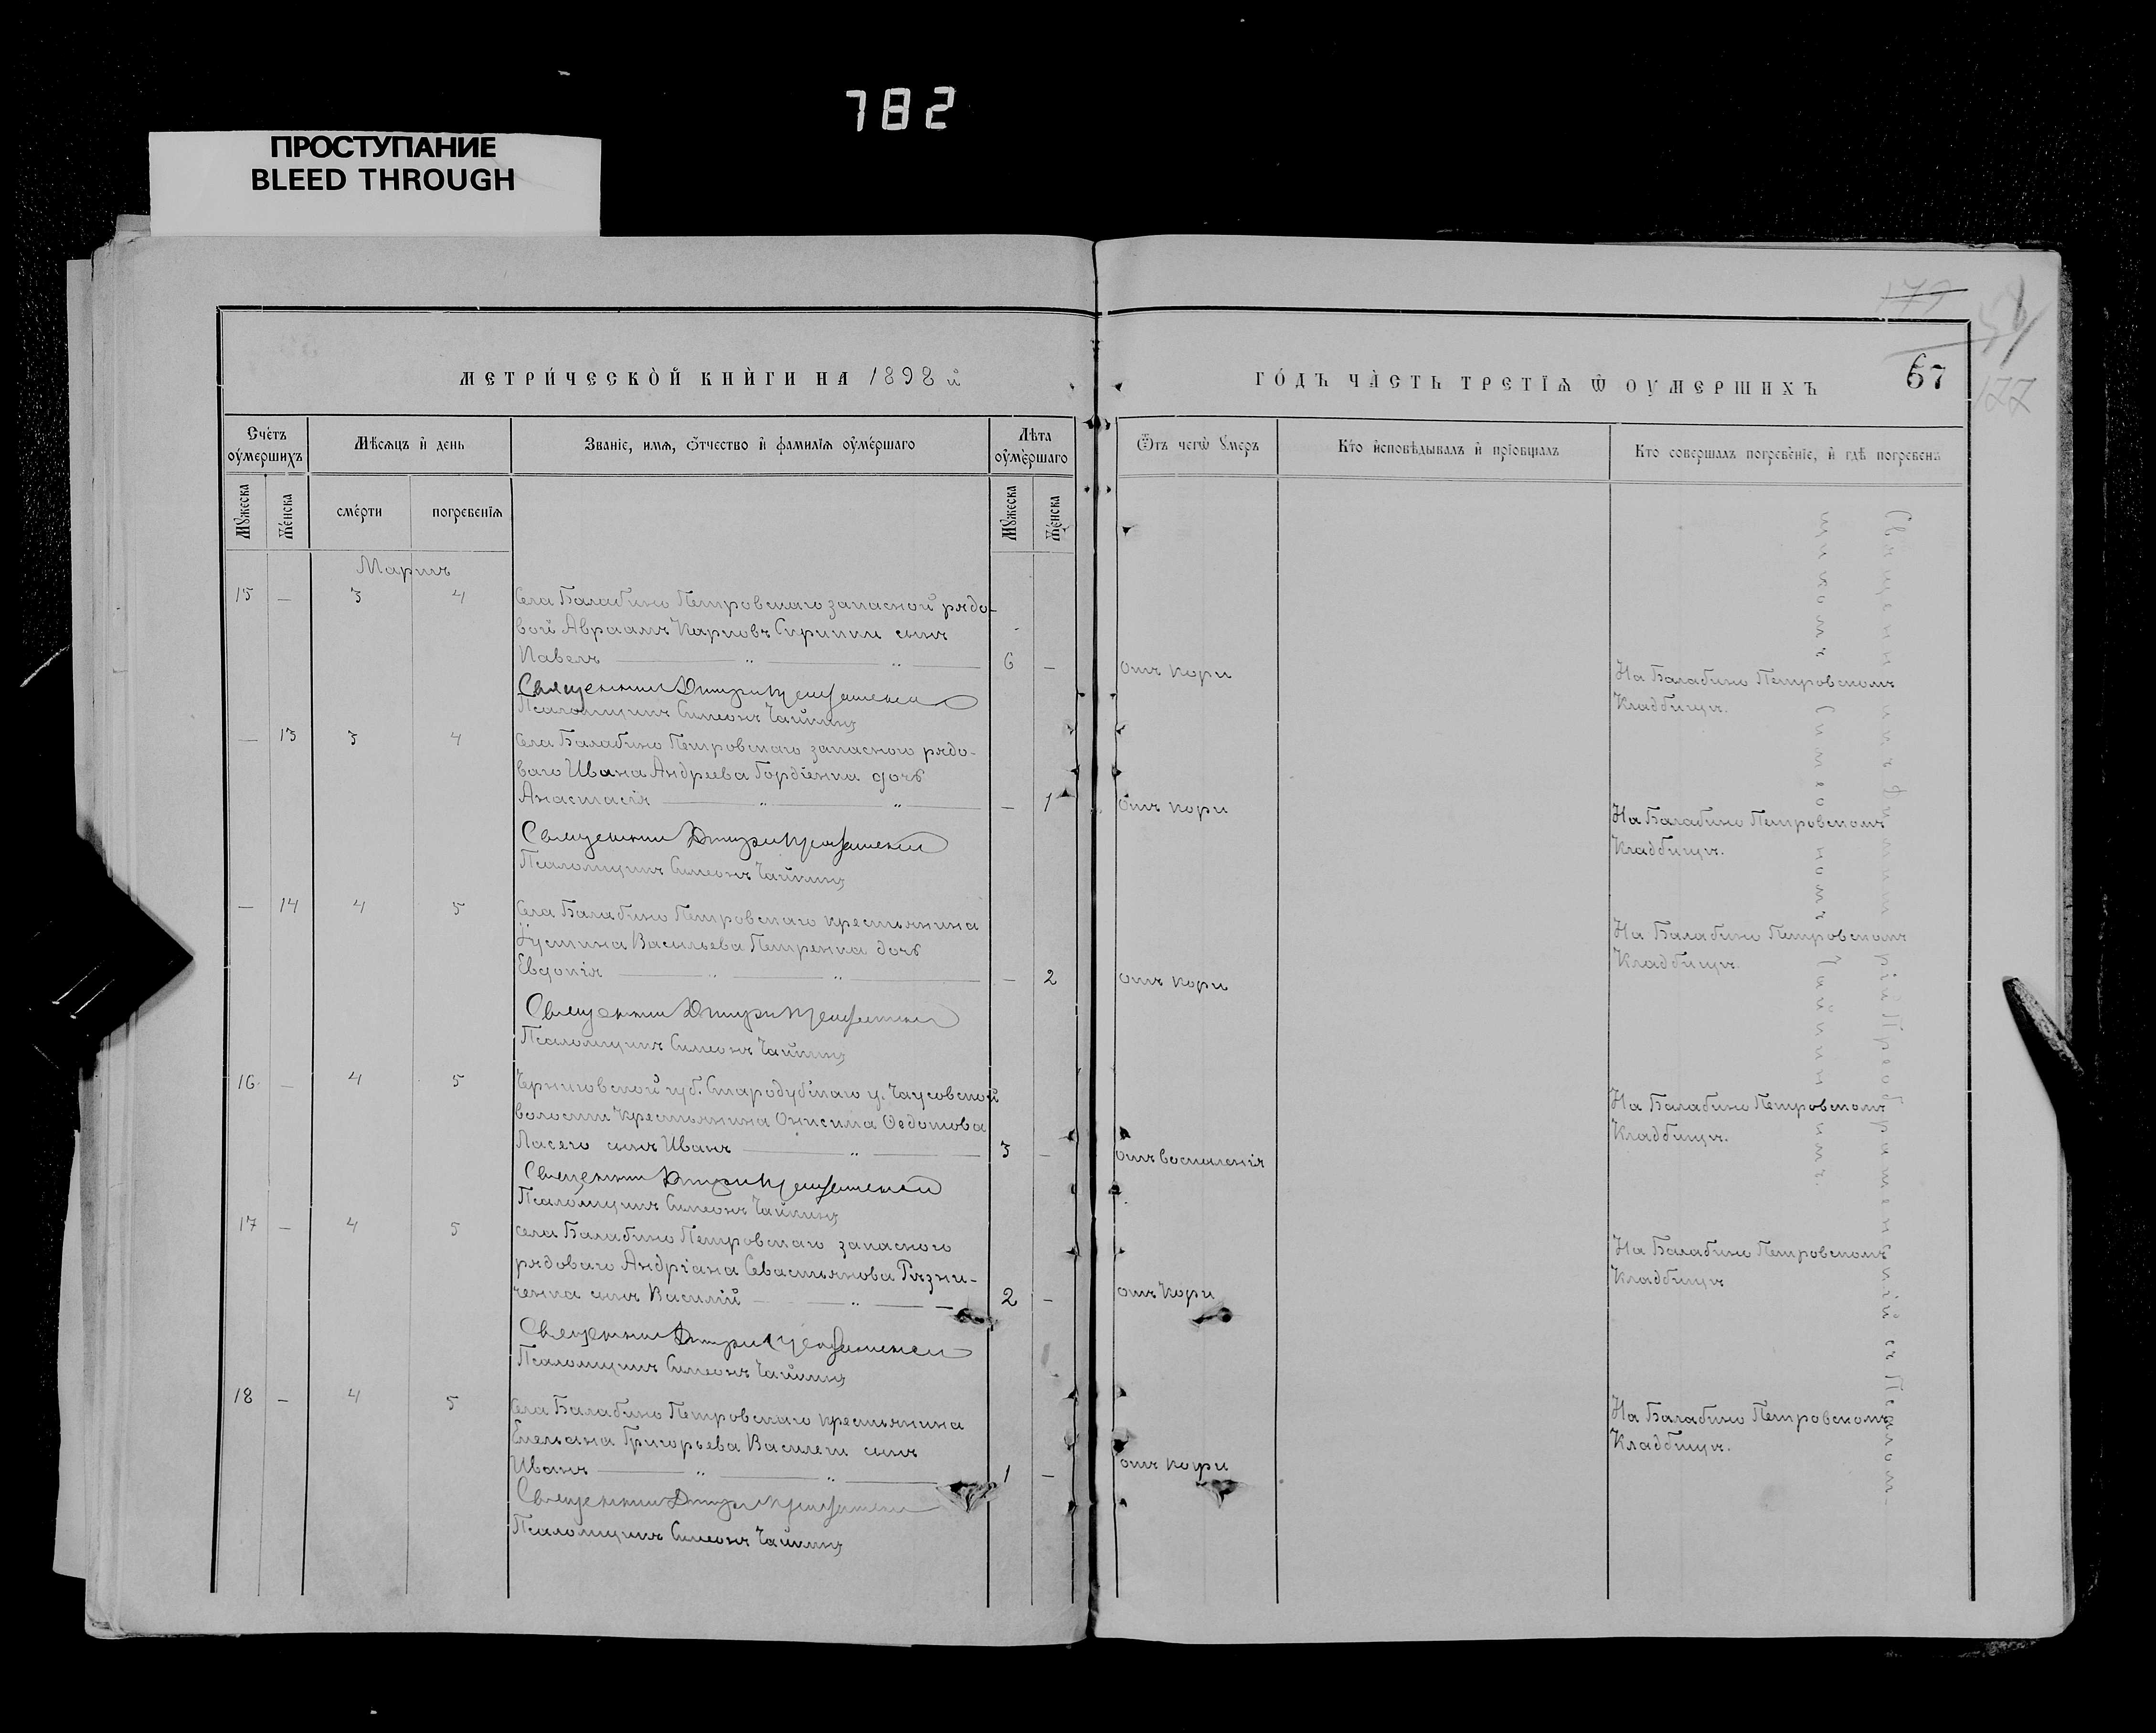 782
ПРОСТУПАНИЕ
BLEED THROUGH
МЕТРИ́ЧЕСКОЙ КНИ́ГИ НА 1898 й
ГО́ДЪ ЧА́СТЬ ТРЕТІѦ Ѿ ОУМЕРШИХЪ
67
179
177
Сче́тъ оу҆ме́ршихъ
Мѣ́сѧцъ и҆ день
Званіе, имѧ, ѻтчество и҆ фамиліѧ оу҆ме́ршаго
Лѣта оу҆ме́ршаго
Ѿтъ чегѡ̀ ᲂу҆меръ
Кто̀ и҆сповѣдывалъ и҆ прїобщалъ
Кто совершалъ погребе́ніе, и҆ гдѣ̀ погребены
Мꙋжеска
Женска
сме́рти
погребеніѧ
Мꙋжеска
Женска
Мартъ
15 — 3 4
Села Балабино Петровскаго запасной рядо-
вой Авраамъ Карповъ Скрипки сынъ
Павелъ 6 —
отъ кори
На Балабино Петровскомъ
Кладбищѣ.
Священникъ Димитрій Преображенскій
Псаломщикъ Симеонъ Чайкинъ
— 13 3 4
Села Балабино Петровскаго запасного рядо-
ваго Ивана Андреева Гордіенка дочь
Анастасія — 1
отъ кори
На Балабино Петровскомъ
Кладбищѣ.
Священникъ Димитрій Преображенскій
Псаломщикъ Симеонъ Чайкинъ
— 14 4 5
Села Балабино Петровскаго крестьянина
Іустина Васильева Петренка дочь
Евдокія — 2
отъ кори
На Балабино Петровскомъ
Кладбищѣ.
Священникъ Димитрій Преображенскій
Псаломщикъ Симеонъ Чайкинъ
16 — 4 5
Черниговской губ. Стародубскаго у. Чаусовской
волости крестьянина Онисима Ѳедотова
Ласего сынъ Иванъ 3 —
отъ воспаленія
На Балабино Петровскомъ
Кладбищѣ.
Священникъ Димитрій Преображенскій
Псаломщикъ Симеонъ Чайкинъ
17 — 4 5
Села Балабино Петровскаго запасного
рядоваго Андріана Севастьянова Рѣзни-
ченка сынъ Василій 2 —
отъ кори
На Балабино Петровскомъ
Кладбищѣ
Священникъ Димитрій Преображенскій
Псаломщикъ Симеонъ Чайкинъ
18 — 4 5
Села Балабино Петровскаго крестьянина
Емельяна Григорьева Василеги сынъ
Иванъ 1 —
отъ кори
На Балабино Петровскомъ
Кладбищѣ.
Священникъ Димитрій Преображенскій
Псаломщикъ Симеонъ Чайкинъ
Священникъ Димитрій Преображенскій съ Псалом-
щикомъ Симеономъ Чайкинымъ.